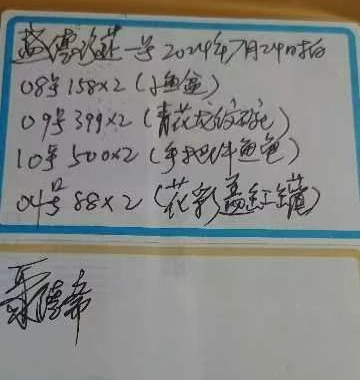 德 一号 2024年7月24日拍
08号 158×2 (小鱼盘)
09号 399×2 (青花龙纹碗)
10号 500×2 (手把件鱼龟)
04号 88×2 (花彩盖缸罐)
德希